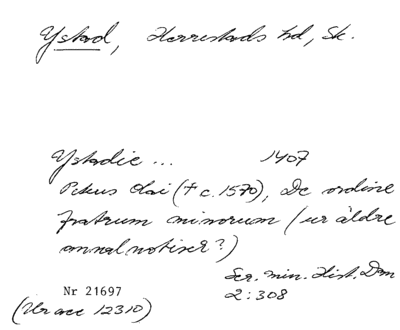 Ystad, Herrestads hd, Sk.
Ystadie ... 1407
Petrus Olai († c. 1570), De ordine
fratrum minorum (ur äldre
annalnotiser?)
Scr. min. Hist. Dan
2:308
Nr 21697
(Ur acc 12310)